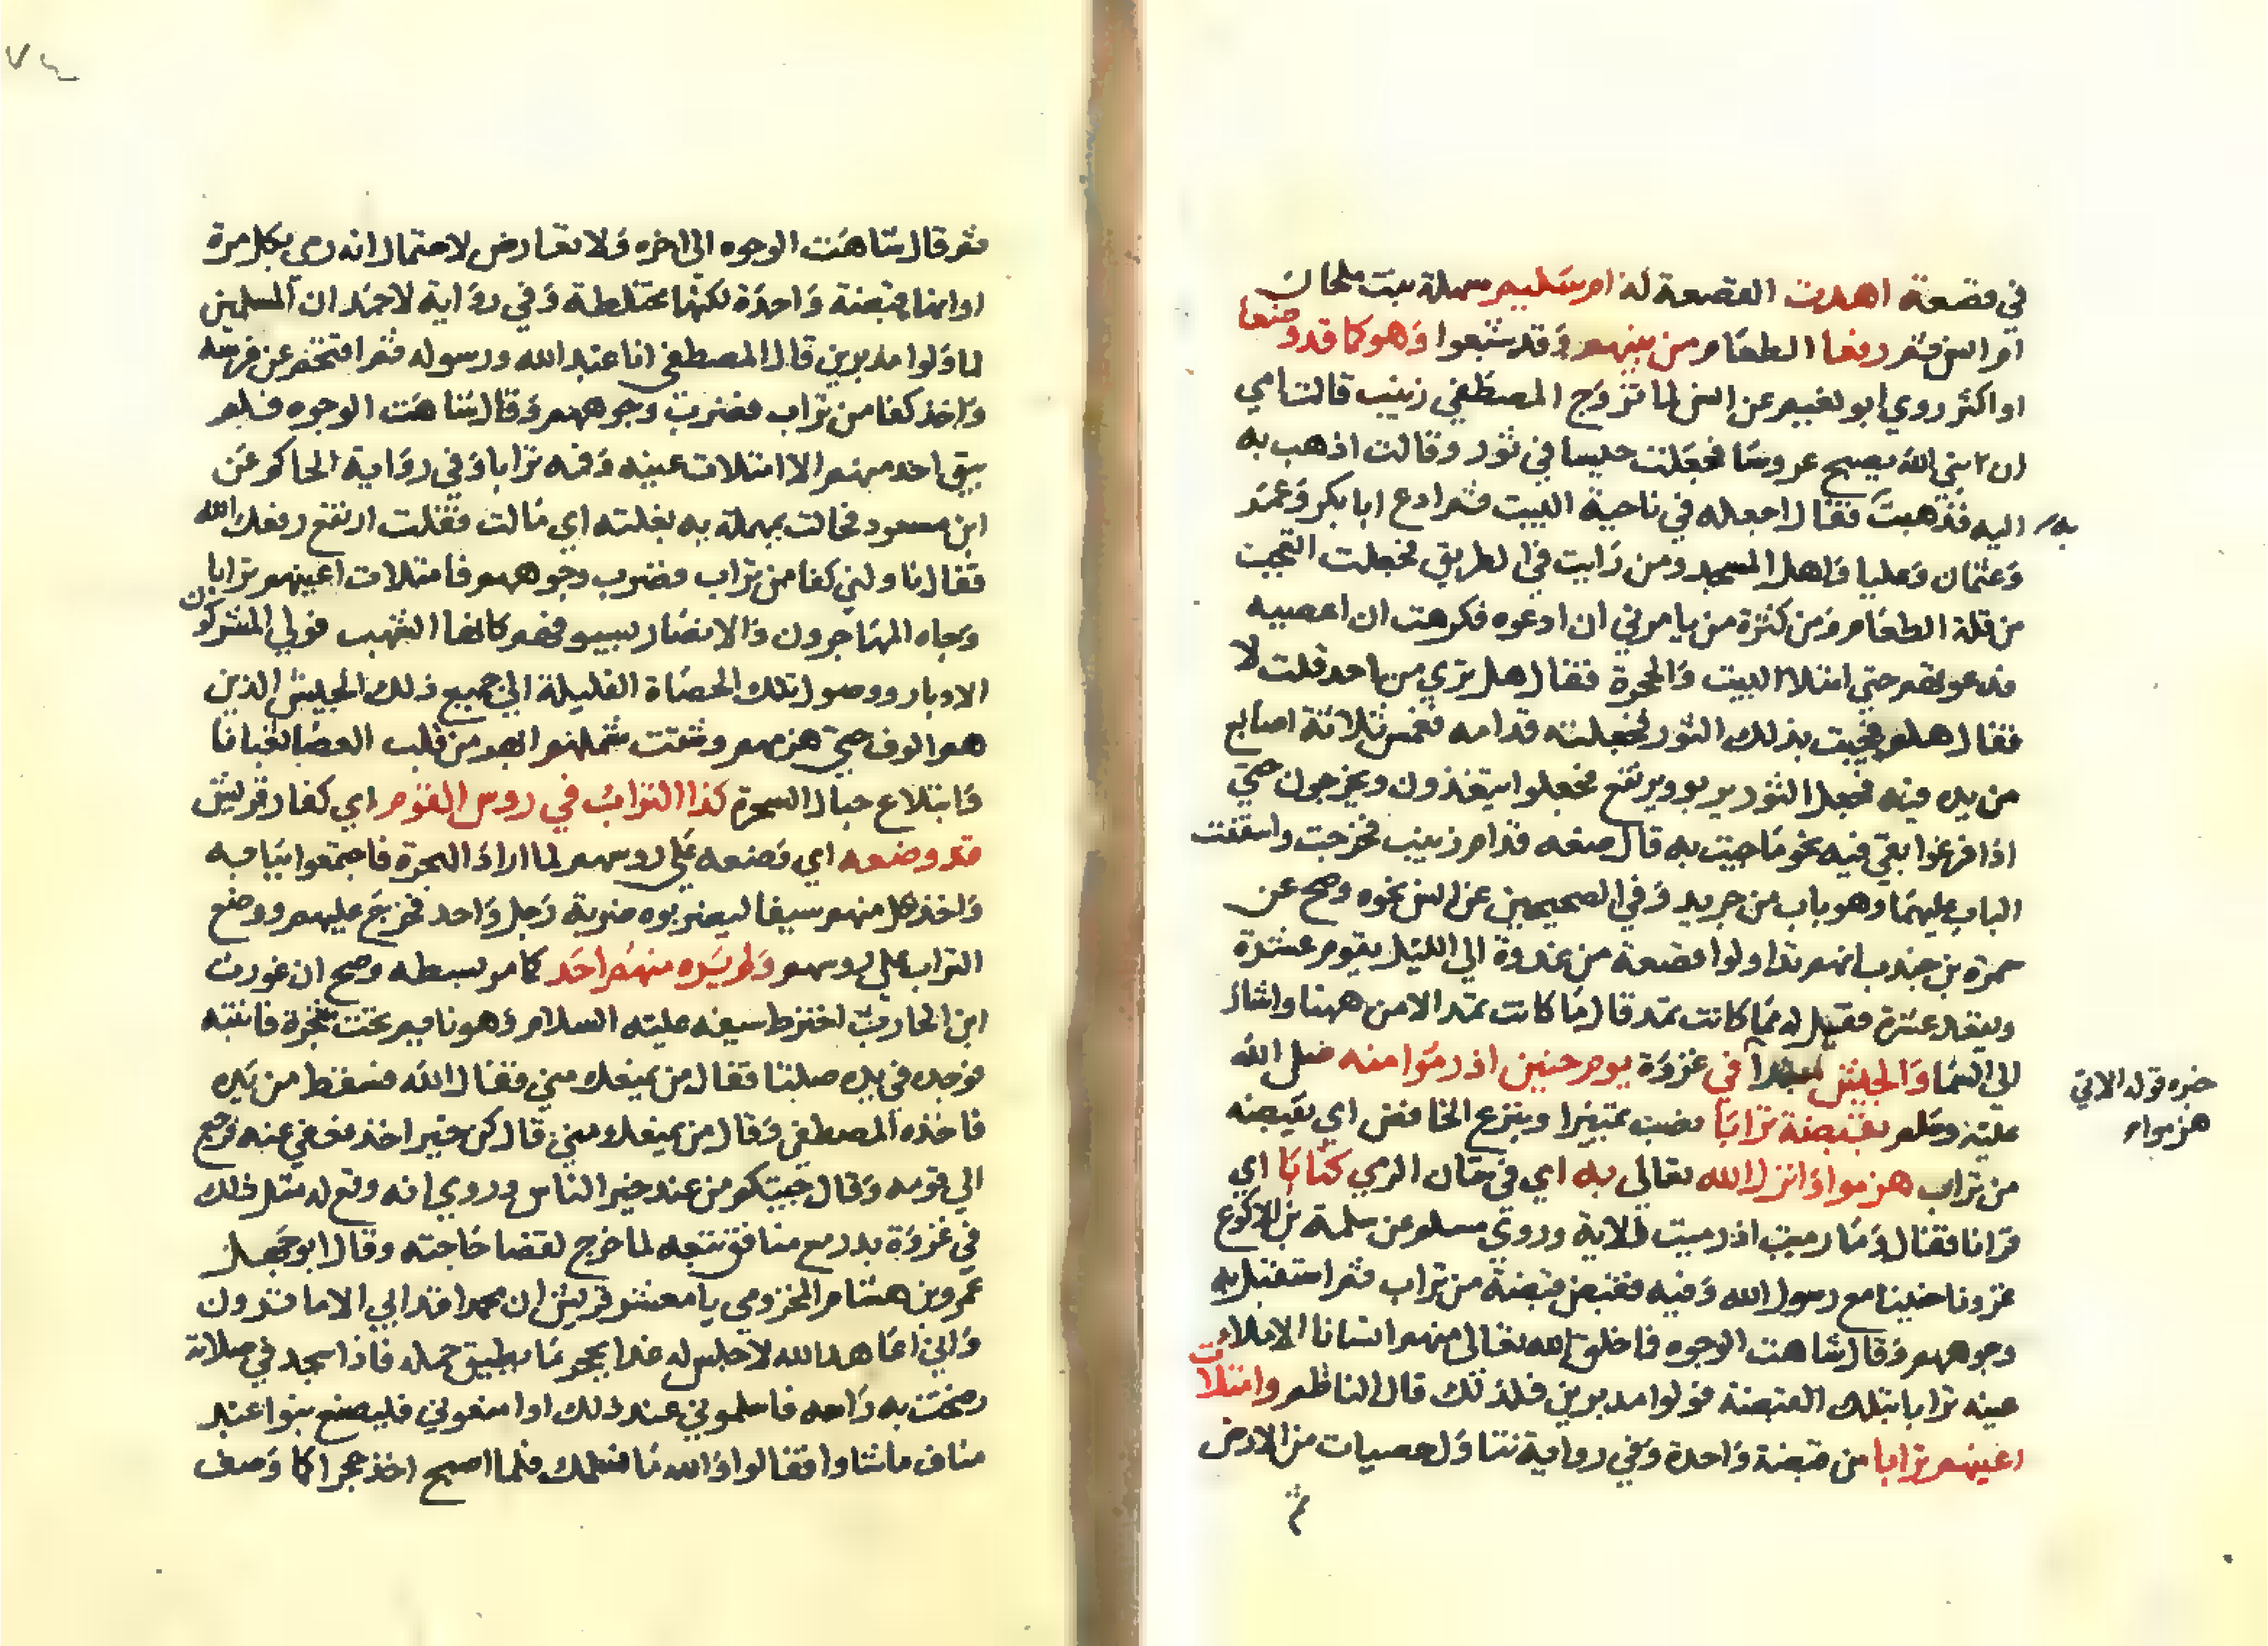 في قصعة اهدت القصعة له ام سليم سهلة بنت ملحان
ام انس ثم رفعا الطعام من بينهم وقد شبعوا وهو كما قد وضعا
او اكثر روي ابو نعيم عن انس لما تزوج المصطفي زينب قالت امي
ان نبي الله يصبح عروسا فجعلت حيسا في ثور وقالت اذهب به
اليه فذهبت فقال اجعله في ناحية البيت ثم ادع ابا بكر وعمر
وعثمان وعليا واهل المسجد ومن رايت في الطريق فجعلت اتعجب
من قلة الطعام ومن كثرة من يامرني ان ادعوه فكرهت ان اعصيه
فدعوتهم حتي امتلا البيت والحجرة فقال هل تري من احد قلت لا
فقال هلم فجيت بذلك الثور فجعلته قدامه فغمس ثلاثة اصابع
من يده فيه فجعل الثور يربو ويرتفع فجعلوا يتغذون ويخرجون حتي
اذا فرغوا بقي فيه نحو ما جيت به قال ضعه قدام زينب فخرجت واسقفت
الباب عليهما وهو باب من جريد وفي الصحيحين عن انس نحوه وصح عن
سمرة بن جندب انهم تداولوا قصعة من غدوة الي الليل يقوم عشرة
ويقعد عشرة فقيل له مما كانت تمد قال ما كانت تمد الا من ههنا واشار
الي السما والجيش في غزوة يوم حنين اذ رموا منه صلي الله
عليه وسلم بقبضة ترابا نصب تمييزا وبنزع الخافض اي بقبضه
من تراب هزموا وانزل الله تعالي به اي في شان الرمي كتابا اي
قرانا فقال وما رميت اذ رميت الاية وروي مسلم عن سلمة بن الاكوع
غزونا حنينا مع رسول الله وفيه فقبض قبضة من تراب ثم استقبل به
وجوههم وقال شاهت الوجوه فما خلق الله تعالي منهم انسانا الا ملات
عينه ترابا بتلك القبضة فولوا مدبرين فلذلك قال الناظم وامتلات
اعينهم ترابا من قبضة واحدة وفي رواية تناول حصيات من الارض
ثم
به
خبره قوله الاتي
هزموا
ثم قال شاهت الوجوه الي اخره ولا تعارض لاحتمال انه رمي بكل مرة
او انها قبضة واحدة لكنها مختلطة وفي رواية لاحمد ان المسلمين
لما ولوا مدبرين قال المصطفي انا عبد الله ورسوله ثم اقتحم عن فرسه
واخذ كفا من تراب فضرب وجوههم وقال شاهت الوجوه فلم
يبق احد منهم الا امتلات عينه وفمه ترابا وفي رواية الحاكم عن
ابن مسعود فحالت بمهملة به بغلته اي مالت فقلت ارتفع رفعك الله
فقال ناولني كفا من تراب فضرب وجوههم فامتلات اعينهم ترابا
وجاه المهاجرون والانصار بسيوفهم كانها الشهب فولي المشركون
الادبار ووصول تلك الحصاة القليلة الي جميع ذلك الجيش الذين
هم الوف حتي هزمهم وشتت شملهم ابهر من قلب العصا ثعبانا
وابتلاع حبال السحرة كذا التراب في روس القوم اي كفار قريش
قد وضعه اي وضعه علي روسهم لما اراد الهجرة فاجتمعوا ببابه
واخذ كل منهم سيفا ليضربوه ضربة رجل واحد فخرج عليهم ووضع
التراب علي روسهم ولم يره منهم احد كما مر بسطه وصح ان غورث
ابن الحارث اخترط سيفه عليه السلام وهو نايم تحت شجرة فانتبه
فوجده في يده صلتا فقال من يمنعك مني فقال الله فسقط من يده
فاخذه المصطفي وقال من يمنعك مني قال كن خير اخذ فعفي عنه فرجع
الي قومه وقال جيتكم من عند خير الناس وروي انه وقع له مثل ذلك
في غزوة بدر مع منافق تبعه لما خرج لقضا حاجته وقال ابو جهل
عمرو بن هشام المخزومي يا معشر قريش ان محمدا قد ابي الا ما ترون
واني اعاهد الله لاجلس له غدا بحجر ما يطيق حمله فاذا سجد في صلاته
رضخت به راسه فاسلموني عند ذلك او امنعوني فليصنع بنوا عبد
مناف ما شاوا فقالوا والله ما نسلمك فلما اصبح اخذ حجرا كما وصف